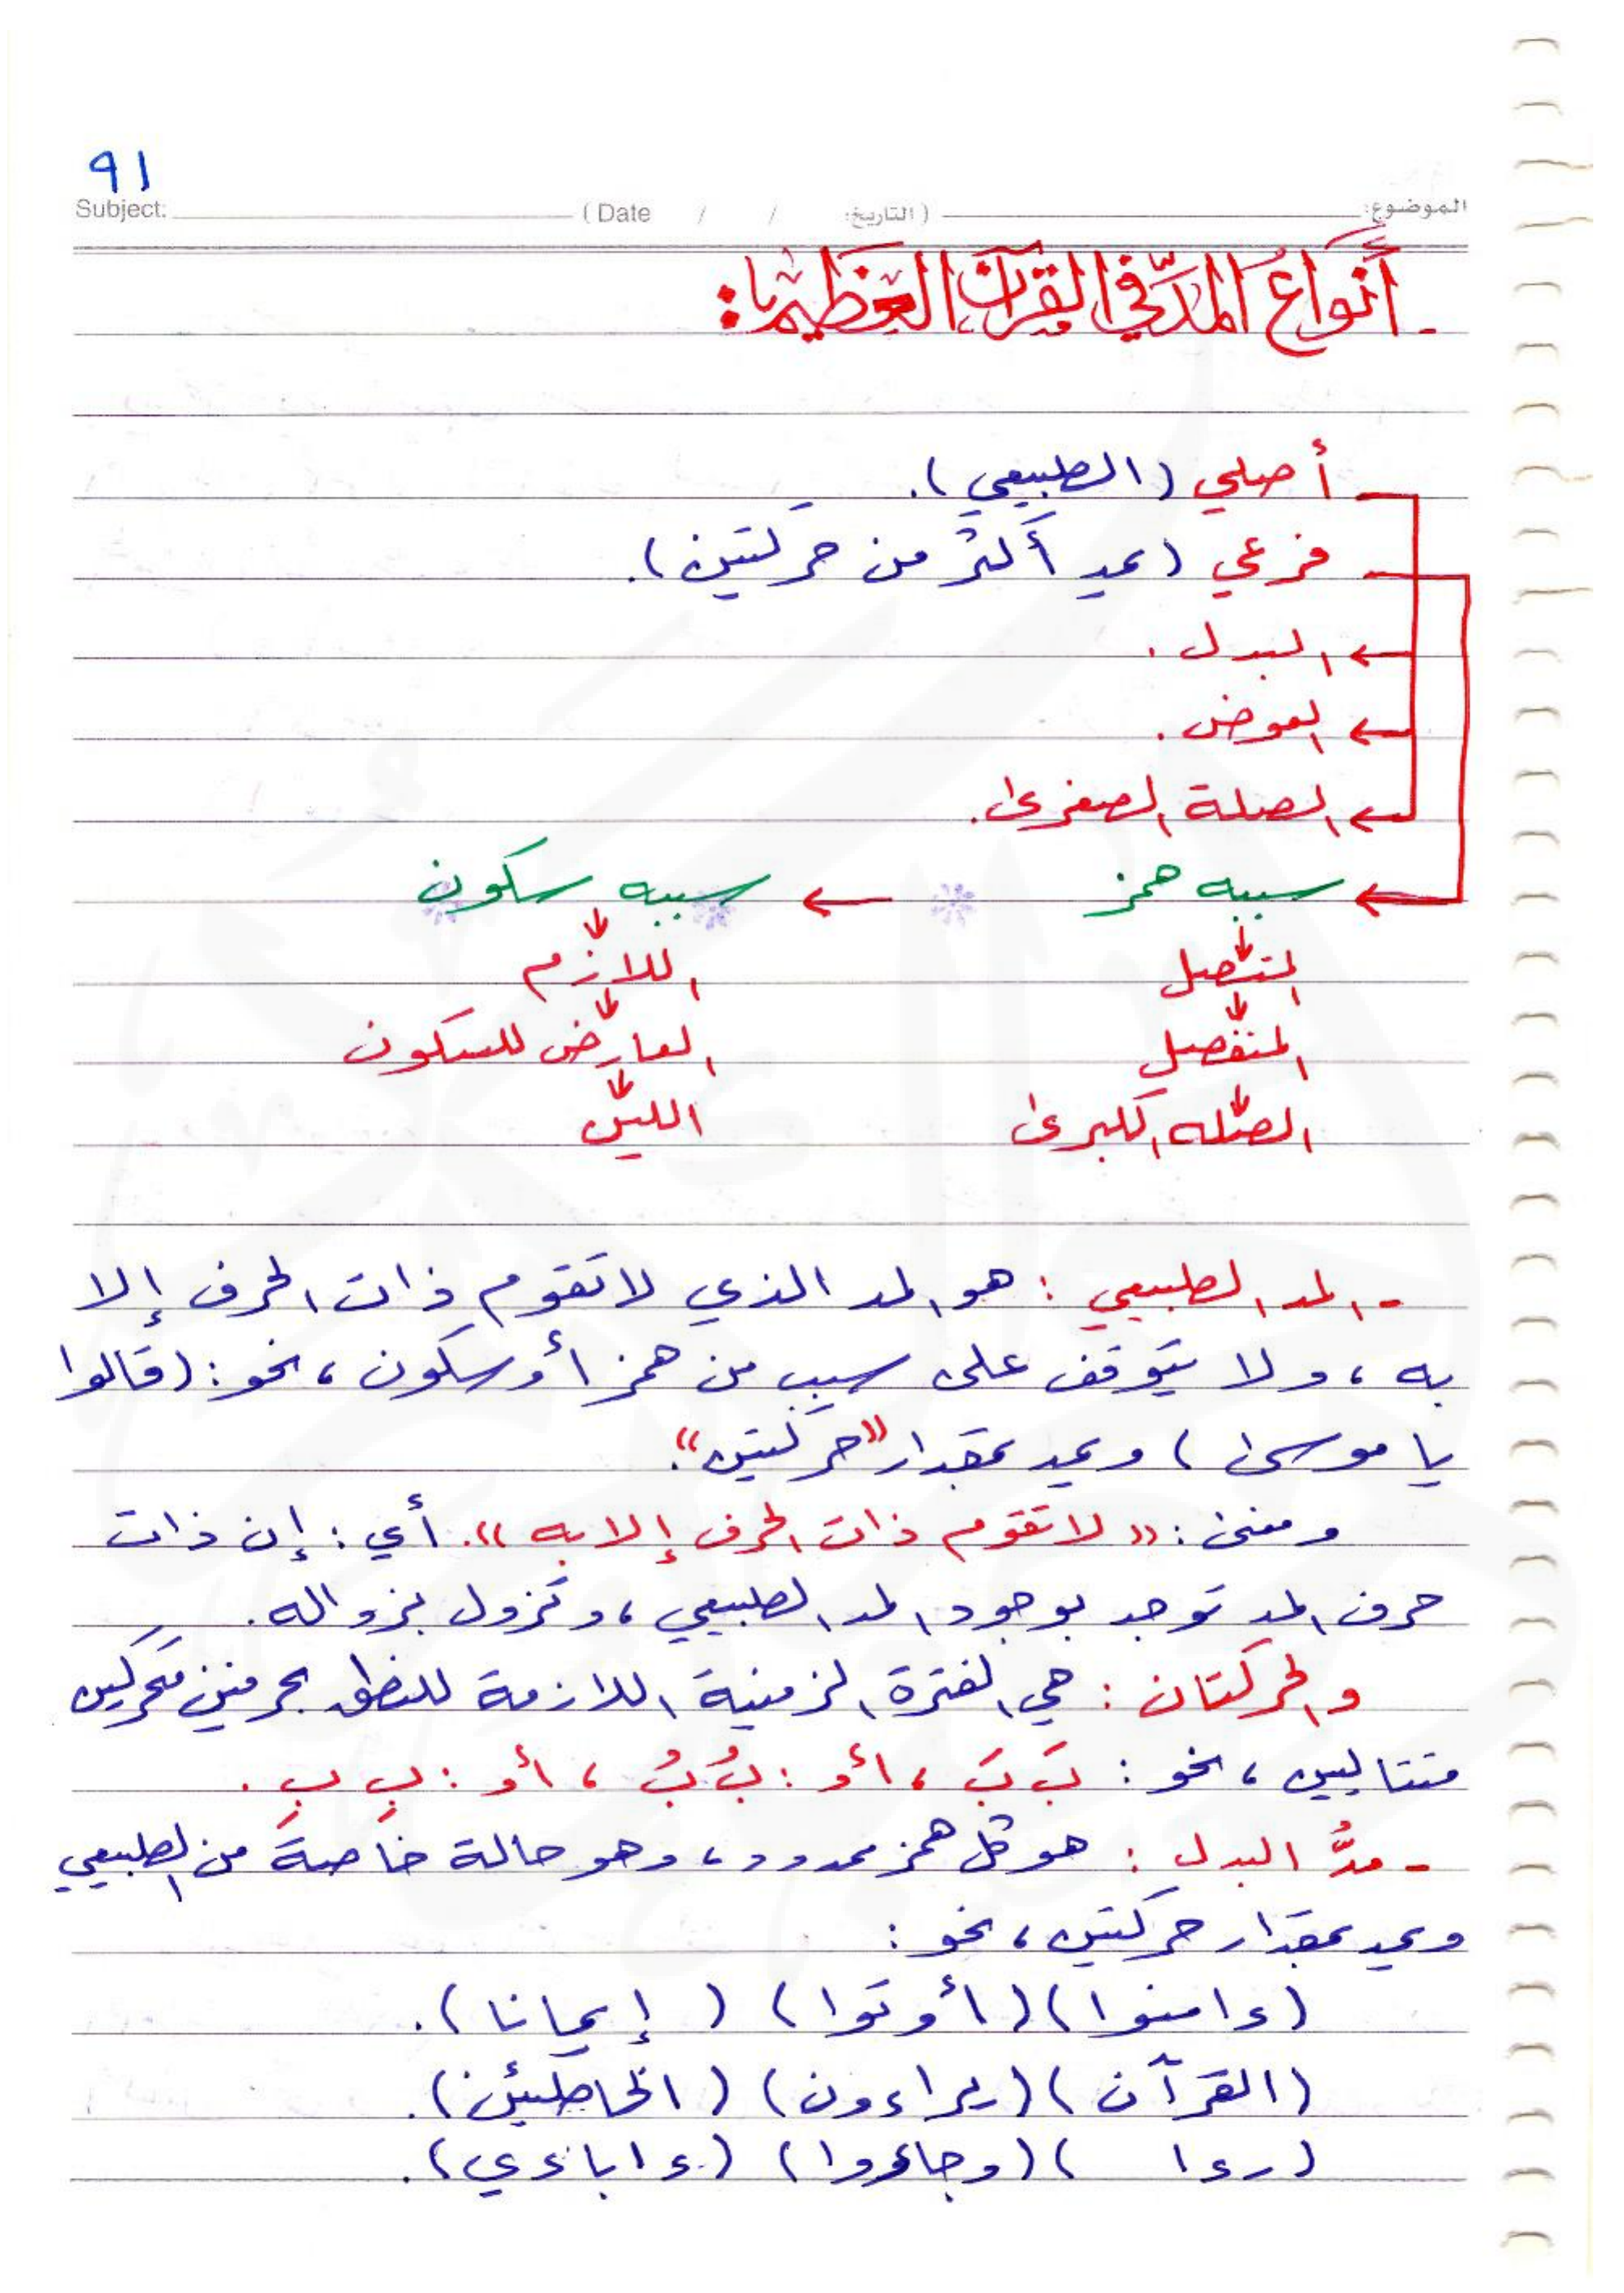 ٩١
Subject: (Date / / التاريخ:) الموضوع:
- أنواع المدّ في القرآن العظيم:
أصلي (الطبيعي).
فرعي (يمد أكثر من حركتين).
← البدل.
← العوض.
← الصلة الصغرى.
← سببه همز ← سببه سكون
المتصل اللازم
المنفصل العارض للسكون
الصله الكبرى اللين
- المد الطبيعي: هو المد الذي لا تقوم ذات الحرف إلا
به، ولا يتوقف على سبب من همز أو سكون، نحو: (قالوا
يا موسى) ويمد بمقدار "حركتين".
ومعنى: «لا تقوم ذات الحرف إلا به». أي: إن ذات
حرف المد توجد بوجود المد الطبيعي، وتزول بزواله.
والحركتان: هي الفترة الزمنية اللازمة للنطق بحرفين متحركين
متتاليين، نحو: بَ بَ، أو: بُ بُ، أو: بِ بِ.
- مدُّ البدل: هو كل همز ممدود، وهو حالة خاصة من الطبيعي
ويمد بمقدار حركتين، نحو:
(ءامنوا) (أوتوا) (إيمانا).
(القرآن) (يراءون) (الخاطئين).
(رءا) (وجاءوا) (ءاباءي).